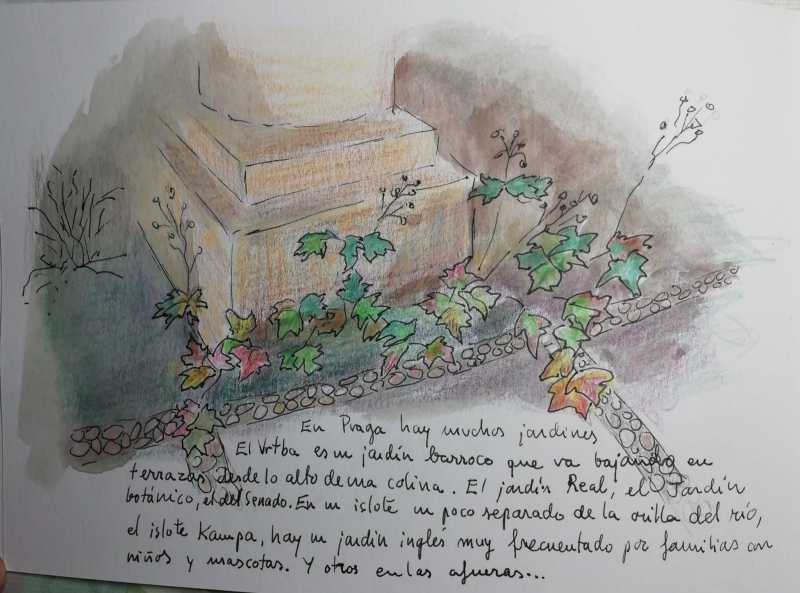 En Praga hay muchos jardines
El Vrtba es un jardín barroco que va bajando en
terrazas desde lo alto de una colina. El jardín Real, el Jardín
botánico, el del Senado. En un islote un poco separado de la orilla del río,
el islote Kampa, hay un jardín inglés muy frecuentado por familias con
niños y mascotas. Y otros en las afueras...